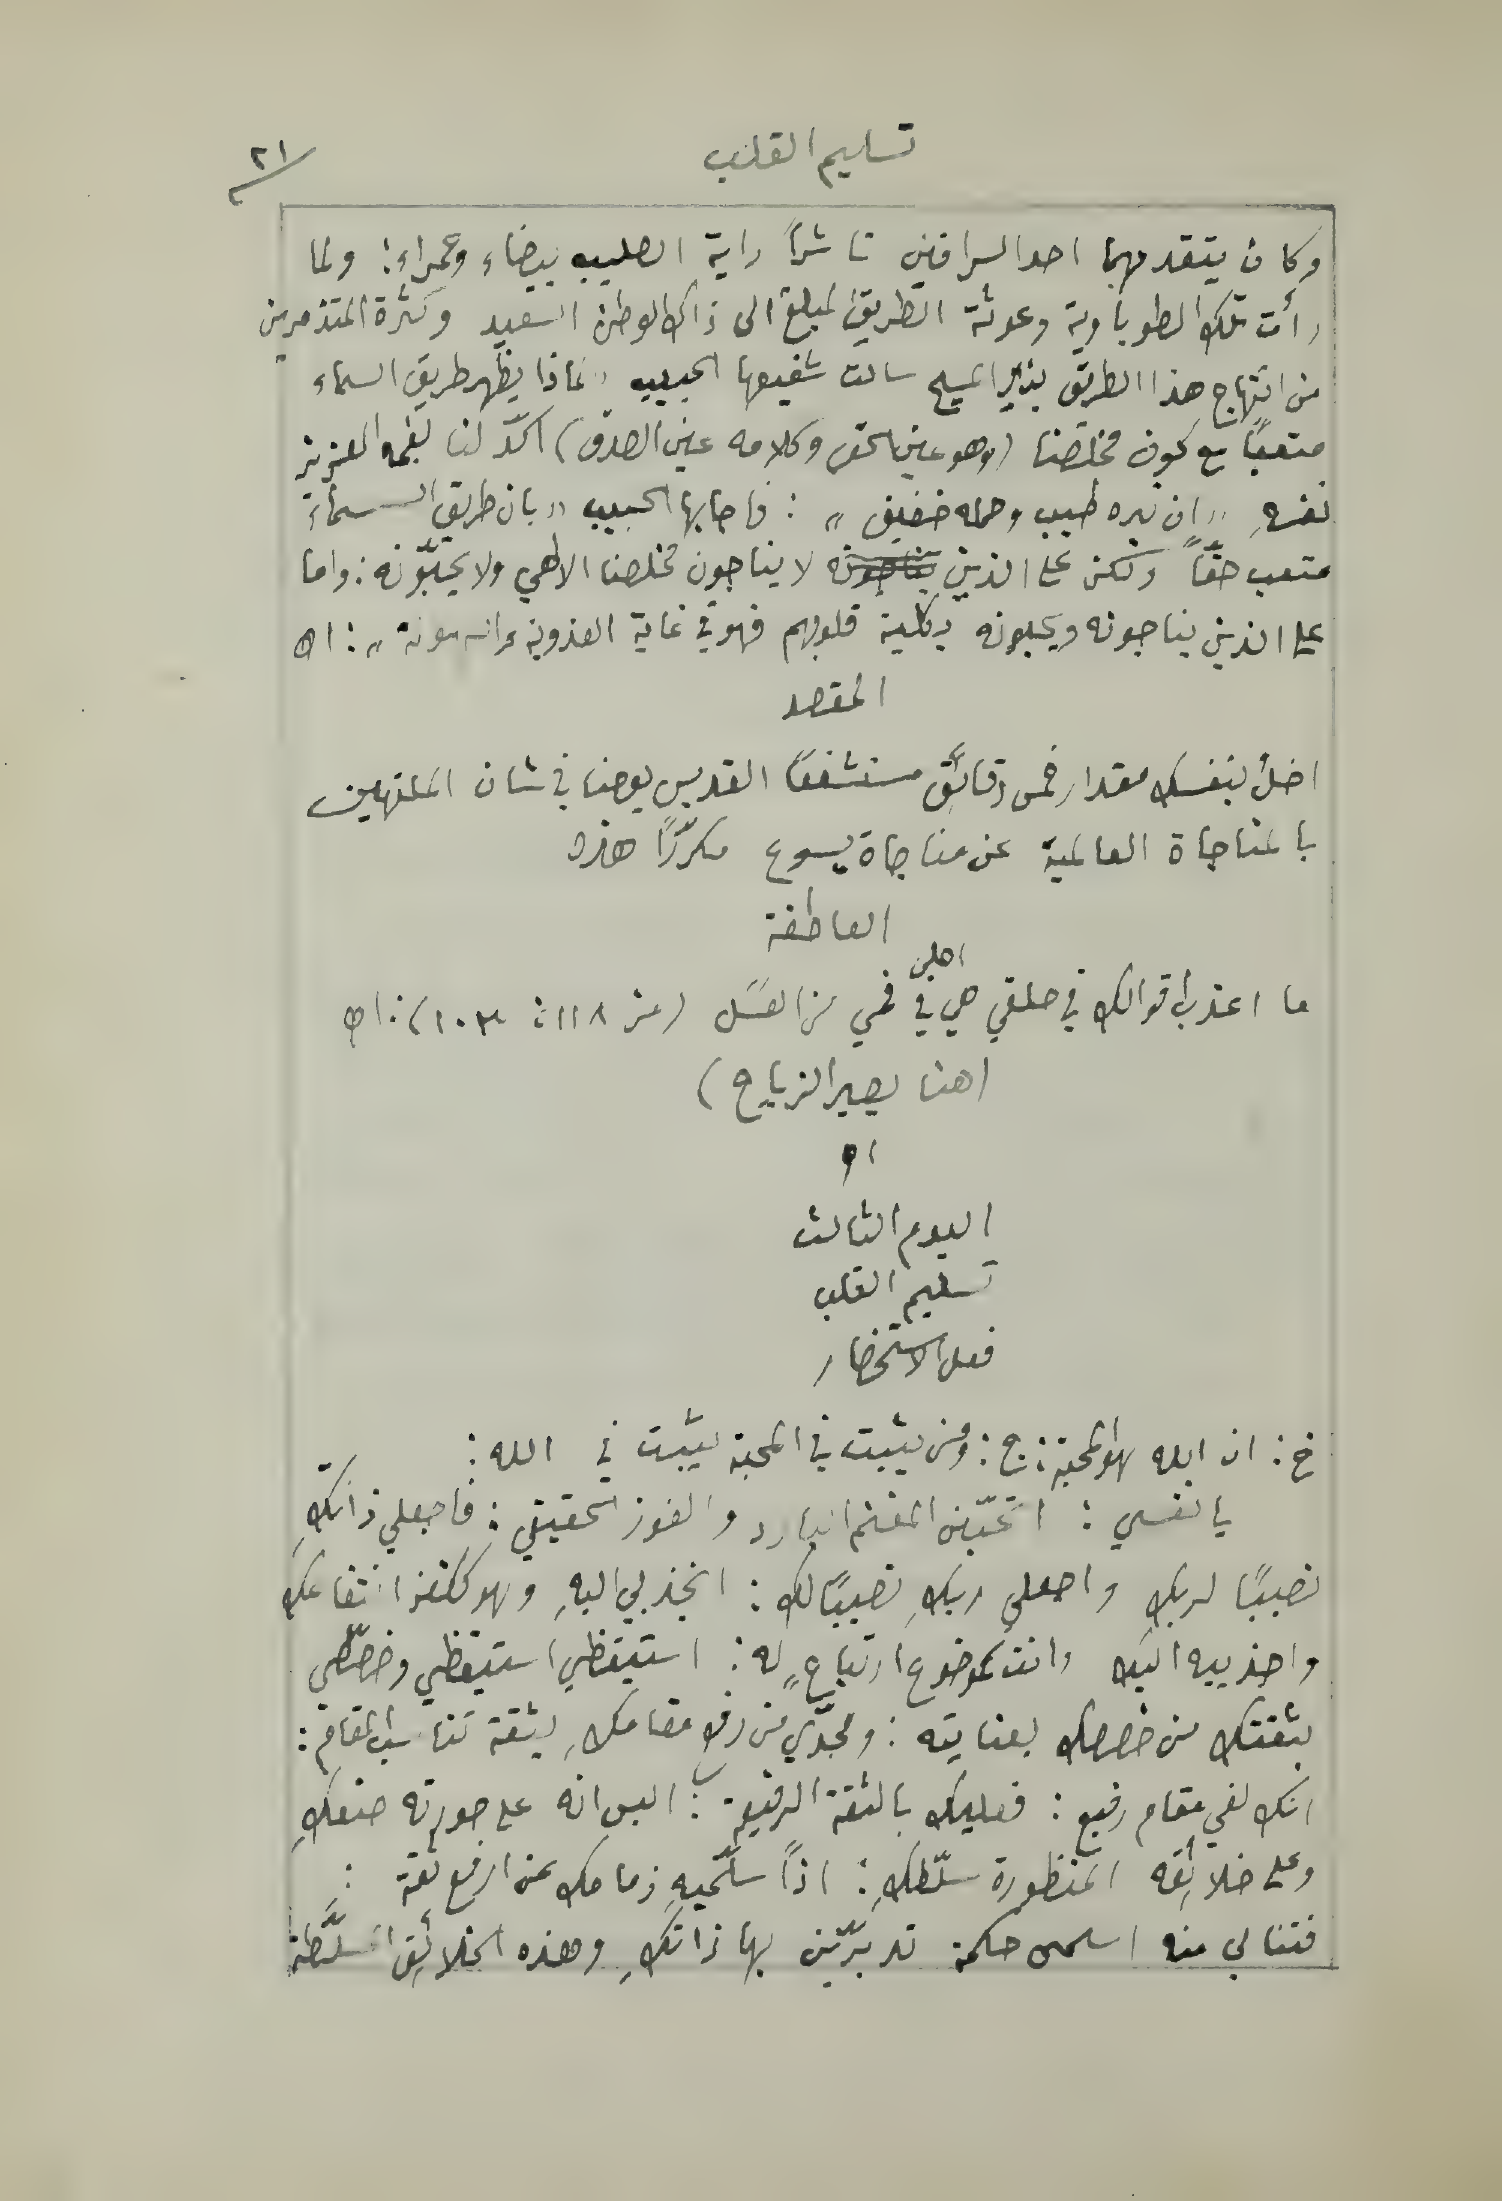 تسليم القلب
٢١
وكان يتقدمهما احد السرافين ناشراً راية الصليب بيضاء وحمراء: ولما
رأت تلك الطوباوية وعوثة الطريق المبلغ الى ذاك الوطن السعيد وكثرة المتذمرين
من انتهاج هذا الطريق المسيح سالت شفيعها الحبيب "لماذا يظهر طريق السماء
متعباً مع كون مخلصنا (وهو عين الحق وكلامه عين الصدق) اكّد لنا بفمه العزيز
نفسهِ "ان نيره طيب وحمله خفيف": فاجابها الحبيب "بان طريق السماء
متعب حقّاً ولكن على الذين لا يناجون مخلصنا الالهي ولا يحبّونه: واما
على الذين يناجونه ويحبونه بكلية قلوبهم فهو في غاية العذوبة والسهولة": اه
المقصد
اخلُ بنفسك مقدار خمس دقائق مستشفعاً القديس يوحنا في شان الملتهين
بالمناجاة العالمية عن مناجاة يسوع مكرّرًا هذه
العاطفة
ما اعذب اقوالك في حلقي هي احلى في فمي من العسَل (مز ١١٨: ١٠٣): اه
(هنا يصير الزياح)
اه
اليوم الثالث
تسليم القلب
فعل الاستحضار
خ: ان الله هو المحبة: ج: ومن يثبت في المحبة يثبت في الله:
يا نفسي: اتحبّين المغنم البارد والفوز الحقيقي: فاجعلي ذاتكِ
نصيبًا لربكِ واجعلي ربكِ نصيبًا لك: انجذبي اليهِ وهو ككنز انتفاعك
واجذبيه اليك وانت كموضوع ارتياحٍ له: استيقظي استيقظي وخصّصي
بثقتك من خصصك بعنايته: ومجدّي من رفع مقامكِ بثقة تناسب المقام:
انك لفي مقام رفيع: فعليك بالثقة الرفيعة: اليس انه على صورته صنعكِ
وعلى خلائقه المنظورة سلّطكِ: اذاً سلّميهِ زمامك عن ارفع ثقة:
فتنالي منه اسمى حكمة تدبرّين بها ذاتكِ وهذه الخلائق المسلَّطة